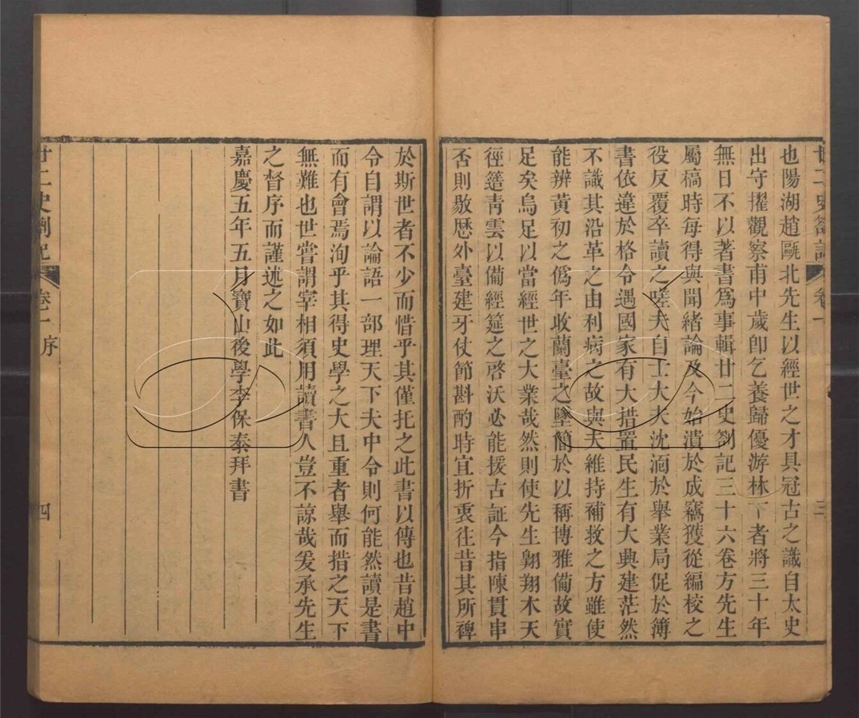 廿二史劄記 卷一 三
也陽湖趙甌北先生以經世之才具冠古之識自太史
出守擢觀察甫中歲卽乞養歸優游林下者將三十年
無日不以著書爲事輯廿二史劄記三十六卷方先生
屬稿時每得與聞緒論及今始潰於成竊獲從編校之
役反覆卒讀之嗟夫自士大夫沈湎於舉業局促於簿
書依違於格令遇國家有大措置民生有大興建茫然
不識其沿革之由利病之故與夫維持補救之方雖使
能辨黃初之僞年收蘭臺之墜簡於以稱博雅備故實
足矣烏足以當經世之大業哉然則使先生翺翔木天
徑簉靑雲以備經筵之啓沃必能援古証今指陳貫串
否則敭歷外臺建牙仗節斟酌時宜折衷往昔其所裨
於斯世者不少而惜乎其僅托之此書以傳也昔趙中
令自謂以論語一部理天下夫中令則何能然讀是書
而有會焉洵乎其得史學之大且重者舉而措之天下
無難也世嘗謂宰相須用讀書人豈不諒哉爰承先生
之督序而謹述之如此
嘉慶五年五月寶山後學李保泰拜書
廿二史劄記 卷一序 四